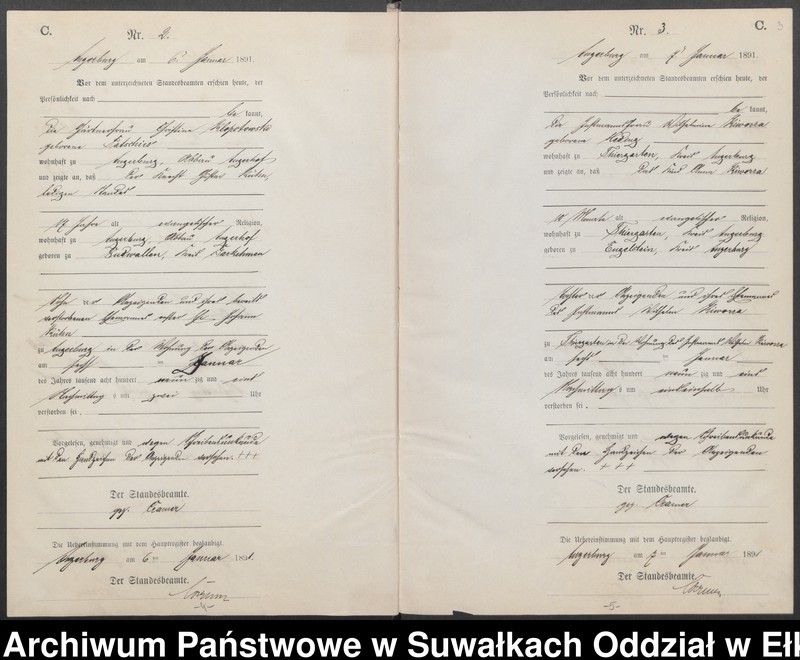 C.
Nr. 2.
Angerburg am 6. Januar 1891.
Vor dem unterzeichneten Standesbeamten erschien heute, der
Persönlichkeit nach
be kannt,
die Gärtnerfrau Christine Klopotowska
geborene
wohnhaft zu Angerburg, Abbau Angerhof
und zeigte an, daß der Knecht
ledigen Standes
17 Jahre alt evangelischer Religion,
wohnhaft zu Angerburg Abbau Angerhof
geboren zu Kreis Darkehmen
Sohn der Anzeigenden und ihres bereits
verstorbenen Ehemannes erster Ehe
zu Angerburg in der Wohnung der Anzeigenden
am Januar
des Jahres tausend acht hundert neun zig und eins
Nachmittags um zwei Uhr
verstorben sei.
Vorgelesen, genehmigt und wegen Schreibensunkunde
mit den Handzeichen der Anzeigenden versehen. +++
Der Standesbeamte.
gez. Cramer
Die Uebereinstimmung mit dem Hauptregister beglaubigt.
Angerburg am 6ten Januar 1891.
Der Standesbeamte.
-4-
Nr. 3
C.
3
Angerburg am 7. Januar 1891.
Vor dem unterzeichneten Standesbeamten erschien heute, der
Persönlichkeit nach
be kannt,
die Instmannsfrau Wilhelmine Kiworra
geborene
wohnhaft zu Thiergarten, Kreis Angerburg
und zeigte an, daß das Kind Anna Kiworra
10 Monate alt evangelischer Religion,
wohnhaft zu Thiergarten, Kreis Angerburg
geboren zu Engelstein, Kreis Angerburg
Tochter der Anzeigenden und ihres Ehemannes
des Instmanns Wilhelm Kiworra
zu Thiergarten in der Wohnung des Instmanns Wilhelm Kiworra
am Januar
des Jahres tausend acht hundert neun zig und eins
Nachmittags um einundeinhalb Uhr
verstorben sei.
Vorgelesen, genehmigt und wegen Schreibensunkunde
mit den Handzeichen der Anzeigenden
versehen. +++
Der Standesbeamte.
gez. Cramer
Die Uebereinstimmung mit dem Hauptregister beglaubigt.
Angerburg am 7ten Januar 1891
Der Standesbeamte.
-5-
Archiwum Państwowe w Suwałkach Oddział w Ełk